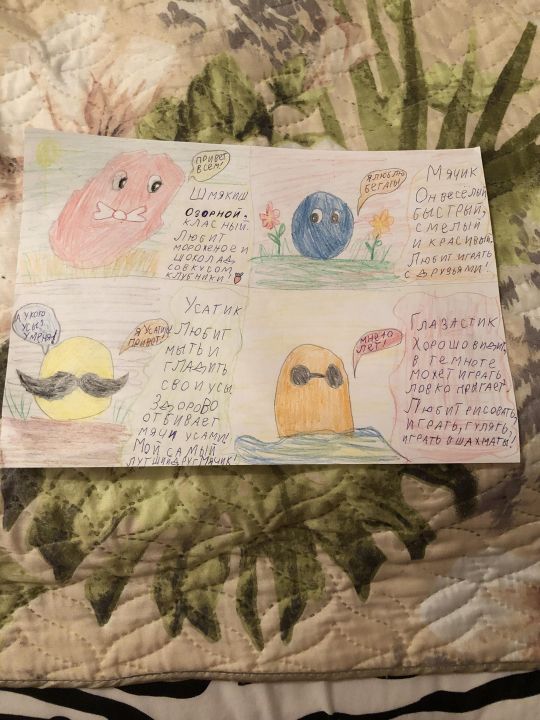 ПРИВЕТ
ВСЕМ!
ШМЯКИШ
ОЗОРНОЙ,
КЛАСНЫЙ.
ЛЮБИТ
МОРОЖЕНОЕ И
ШОКОЛАД
СО ВКУСОМ
КЛУБНИКИ!
Я ЛЮБЛЮ
БЕГАТЬ!
МЯЧИК
ОН ВЕСЁЛЫЙ
БЫСТРЫЙ,
СМЕЛЫЙ
И КРАСИВЫЙ.
ЛЮБИТ ИГРАТЬ
С ДРУЗЬЯМИ!
А У КОГО
УСЫ?
У МЕНЯ!
Я УСАТИК
ПРИВЕТ!
УСАТИК
ЛЮБИТ
МЫТЬ И
ГЛАДИТЬ
СВОИ УСЫ.
ЗДОРОВО
ОТБИВАЕТ
МЯЧИ УСАМИ!
МОЙ САМЫЙ
ЛУТШИЙ ДРУГ МЯЧИК!
МНЕ 10
ЛЕТ!
ГЛАЗАСТИК
ХОРОШО ВИДИТ,
В ТЕМНОТЕ
МОЖЕТ ИГРАТЬ,
ЛОВКО ПРЫГАЕТ.
ЛЮБИТ РИСОВАТЬ,
ИГРАТЬ, ГУЛЯТЬ,
ИГРАТЬ В ШАХМАТЫ!